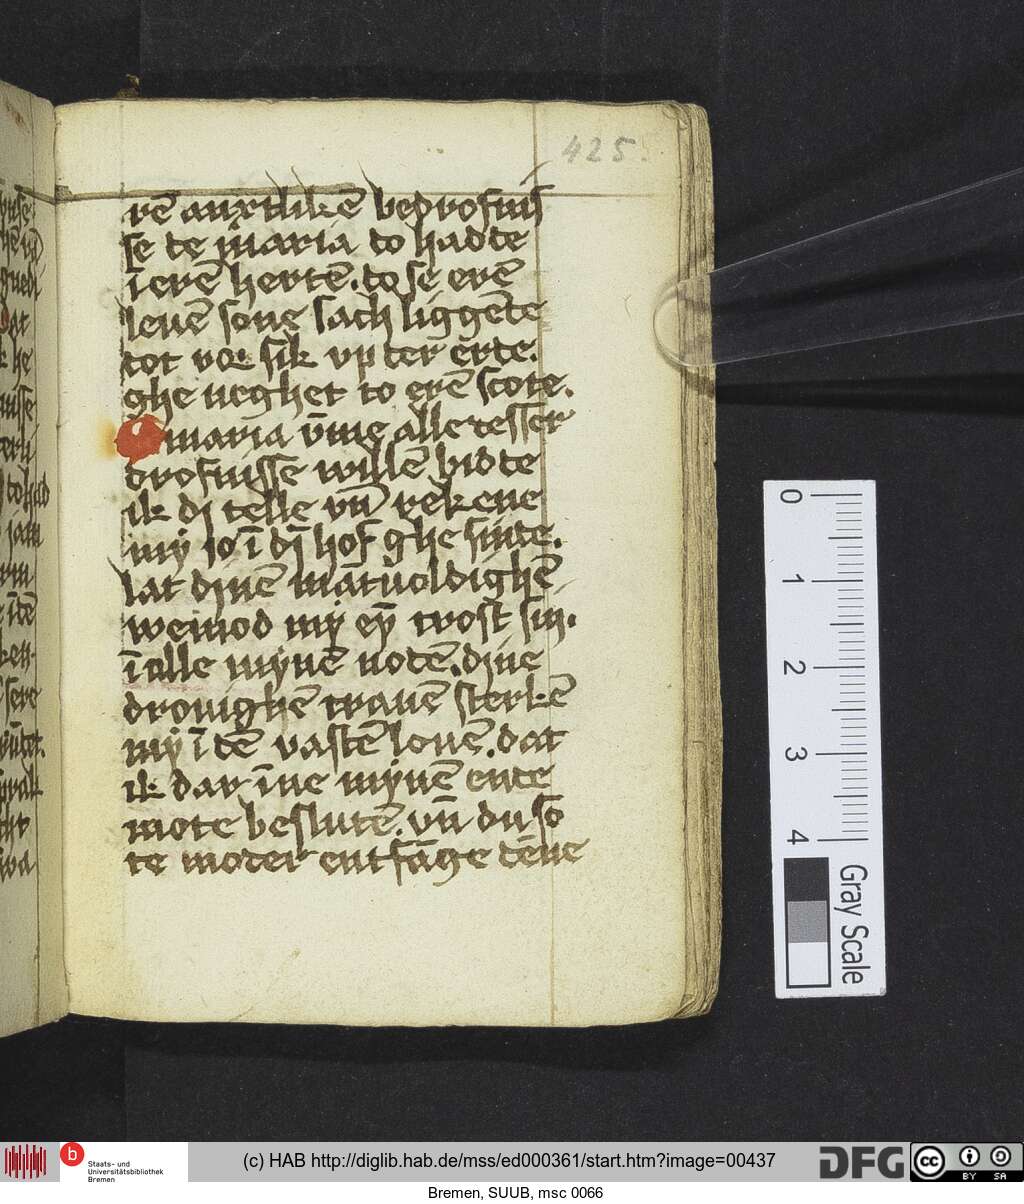 425.
rē anxtlikē bedrofnis
se de maria to hadde
ī erē hertē. do se erē
leuē sone sach liggēde
dot vor sik vp der erde.
ghe neghet to erē scote.
O maria v̄me alle desser
drofnisse willē bidde
ik di telle vn̄ rekene
my io ī dī hof ghe sinde.
lat dinē mānichuoldighē
wemod my eȳ trost sin.
ī alle mynē notē. dine
drouighē tranē sterkē
my ī dē vastē louē. dat
ik dar īne mynē ende
mote beslutē. vn̄ du so
te moder entfāge dēne
0 1 2 3 4
Gray Scale
b
Staats- und
Universitätsbibliothek
Bremen
(c) HAB http://diglib.hab.de/mss/ed000361/start.htm?image=00437
DFG
cc BY SA
Bremen, SUUB, msc 0066